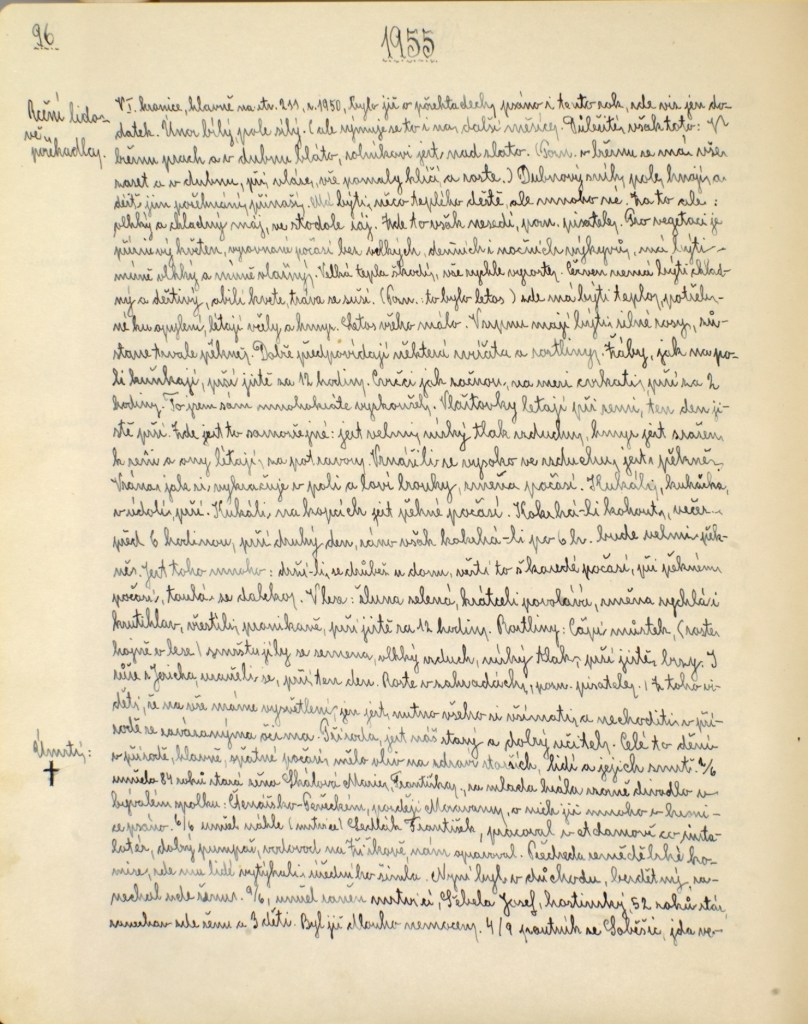 96
1955
Rčení lido-
vé
pořekadla.
V I. kronice, hlavně na str. 211, r. 1950, bylo již o pořekadlech psáno i tento rok, zde viz jen do-
datek. Únor bílý, pole sílí. (ale výmuje se to i na další měsíce. Důležité, však toto: V
březnu prach a v dubnu bláto, rolníkovi jest, nad zlato. (Pozn. v březnu se má vše
zaset a v dubnu, při, vláze, vše pomalu klíčí a roste.) Dubnový sníh, pole, hnojí, a
déšť jim požehnání, přináší. Má býti, něco teplého deště, ale mnoho ne. Za to ale:
vlhký a chladný máj, ve stodole ráj. Zde to však nesedí, pozn. pisatele. Pro vegetaci je
příznivý květen, vyrovnané počasí bez velkých, denních i nočních výkyvů, má býti
mírně vlhký a mírně vlažný. Velká tepla škodí, vše rychle vyroste. Červen nemá býti chlad-
ný a deštivý, obilí kvete, tráva se suší. (Pozn.: to bylo letos) zde má býti teplo, potřeb-
né ku opylení, létají včely a hmyz. Letos všeho málo. V srpnu mají býti silné rosy, zů-
stane trvale pěkně. Dobře předpovídají některá zvířata a rostliny. Žáby, jak na po-
li kuňkají, prší jistě za 12 hodin. Cvrčci jak začnou, na mezi cvrkati, prší za 2
hodiny. To jsem sám mnohokráte vyzkoušel. Vlaštovky létají při zemi, ten den ji-
stě prší. Zde jest to samozřejmé: jest velmi nízký tlak vzduchu, hmyz jest sražen
k zemi a ony létají za potravou. Vznášili se vysoko ve vzduchu, jest pěkně.
Vrána, jak si vykračuje v poli a loví brouky, změna počasí. Kukáli, kukačka,
v údolí, prší. Kukáli, na kopcích jest pěkné počasí. Kokrhá-li kohout, večer
před 6 hodinou, prší druhý den, ráno však kokrhá-li po 6 h. bude velmi pěk-
ně. Jest toho mnoho: drží-li, se drůbež u domu, věstí to škaredé počasí, při pěkném
počasí, toulá se daleko. V lese: žluna zelená, krátceli povolává, změna rychlá i
krutihlav, vřeštíli, pronikavě, prší jistě za 12 hodin. Rostliny: Čapí nůstek, (roste
hojně v lese) smrštujíly se semena, vlhký vzduch, nízký tlak, prší jistě, brzy. I
růže z Jericha, uzavřeli se, prší ten den. Roste v zahradách, pozn. pisatele. Z toho vi-
děti, že na vše máme vysvětlení, jen jest, nutno všeho si všímati, a nechoditi v pří-
rodě se zavázanýma očima. Příroda, jest náš starý a dobrý učitel. Celé to dění
v přírodě, hlavně, špatné počasí, mělo vliv na zdraví starších, lidí a jejich smrt. 2/6
Úmrtí:
✝
zemřela 84 roků stará žena Skálová Marie, Františka, za mlada hrála vzorně divadlo v
bývalém spolku: Čtenářsko-Pěveckém, později Moravanu, o nich již mnoho v kroni-
ce psáno. 6/6 umřel náhle (mrtvice) Sedlák František, pracoval v at damově co insta-
latér, dobrý pumpař, vodovod na Žižkově, nám opravoval. Předseda zemědělské ko-
mise, zde mu lidé vytýkali, úředního šimla. Nyní byl v důchodu, bezdětný, za-
nechal zde ženu. 9/6, umřel raněn mrtvicí, Gébela Josef, hostinský, 52 roků stár,
zanechav zde ženu a 3 děti. Byl již dlouho nemocen. 4/9 poutník ze Soběšic, jda ve-